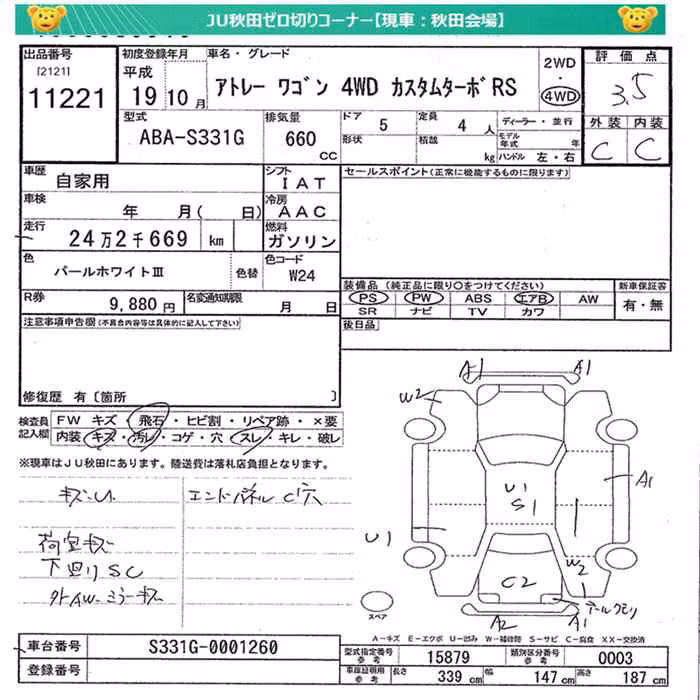 JU秋田ゼロ切りコーナー【現車：秋田会場】
出品番号 [2121] 11221
初度登録年月 平成 19 10 月
車名・グレード アトレー ワゴン 4WD カスタムターボRS
2WD・4WD
評価点 3.5
型式 ABA-S331G
排気量 660 CC
ドア 5 定員 4 人
形状 積載 kg
ディーラー・並行
モデル年式 年
ハンドル 左・右
外装 C 内装 C
車歴 自家用
シフト IAT
セールスポイント(正常に機能するものに限ります)
車検 年 月( 日)
冷房 AAC
走行 24万2千669 km
燃料 ガソリン
色 パールホワイトⅢ 色替
色コード W24
装備品 (純正品に限り○をつけてください)
新車保証書
PS PW ABS エアB AW
SR ナビ TV カワ
有・無
R券 9,880 円
名変通知期限 月 日
後日品
注意事項申告欄(不具合内容等は具体的に記入して下さい)
修復歴 有〔箇所 〕
検査員記入欄
FW キズ・飛石・ヒビ割・リペア跡・×要
内装・キズ・汚レ・コゲ・穴・スレ・キレ・破レ
※現車はJU秋田にあります。陸送費は落札店負担となります。
キズ・U
エンドパネル C穴
荷室キズ
下廻りSC
外AW・ミラーキズ
A1 A1
W2
A1
U1
S1
U1
W2
C2
テールクモリ
A2 A1
スペア
A-キズ E-エクボ U-凹み W-補修跡 S-サビ C-腐食 XX-交換済
車台番号 S331G-0001260
登録番号
型式指定番号 参考 15879
類別区分番号 参考 0003
車庫証明用 参考 長さ 339 cm 幅 147 cm 高さ 187 cm